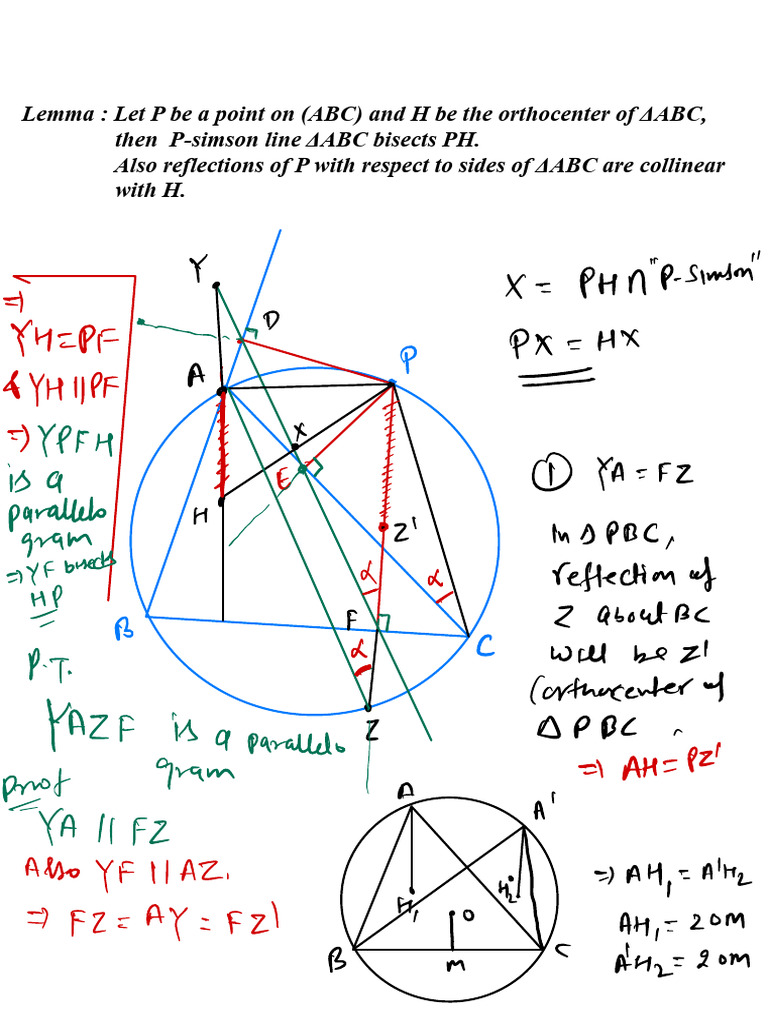 Lemma : Let P be a point on (ABC) and H be the orthocenter of ΔABC,
then P-simson line ΔABC bisects PH.
Also reflections of P with respect to sides of ΔABC are collinear
with H.
Y
D
P
A
X
E
H
Z'
α
α
F
B
C
α
Z
X = PH ∩ "P-Simson"
PX = HX
① YA = FZ
In Δ PBC,
reflection of
Z about BC
will be Z'
(orthocenter of
Δ PBC
⇒ AH = PZ'
⇒
YH = PF
& YH || PF
⇒ YPFH
is a
parallelo
gram
⇒ YF bisects
HP
P.T.
YAZF is a parallelo
gram
Proof
YA || FZ
Also YF || AZ.
⇒ FZ = AY = FZ'
A
A'
H₁
H₂
O
B
M
C
⇒ AH₁ = A'H₂
AH₁ = 2OM
A'H₂ = 2OM